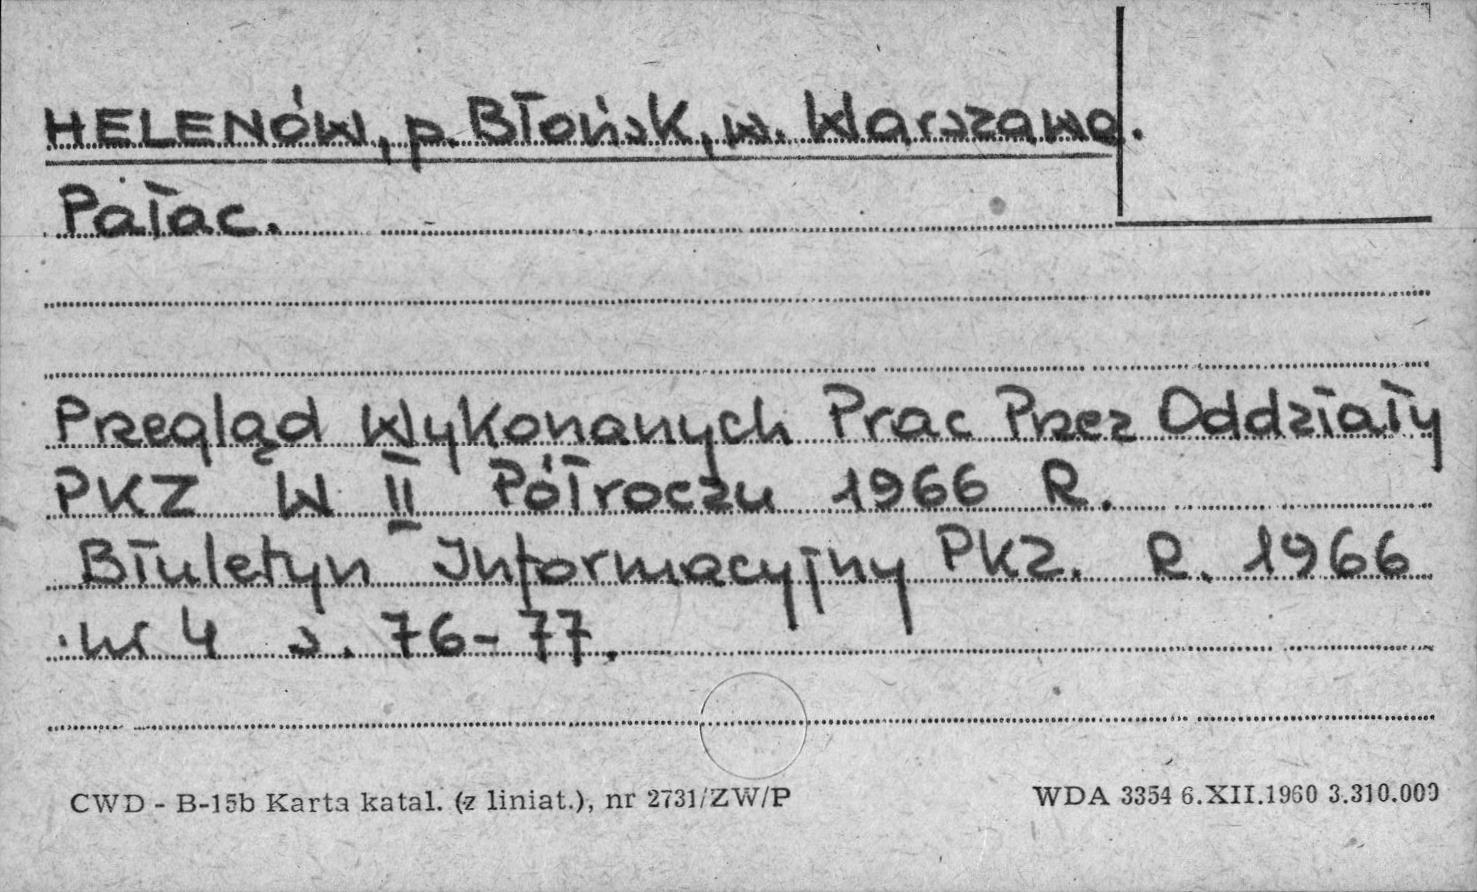 HELENÓW, p. Błońsk, w. Warszawa.
Pałac.
Przegląd Wykonanych Prac Przez Oddziały
PKZ W II Półroczu 1966 R.
Biuletyn Informacyjny PKZ. R. 1966
nr 4 s. 76-77.
CWD - B-15b Karta katal. (z liniat.), nr 2731/ZW/P
WDA 3354 6.XII.1960 3.310.000